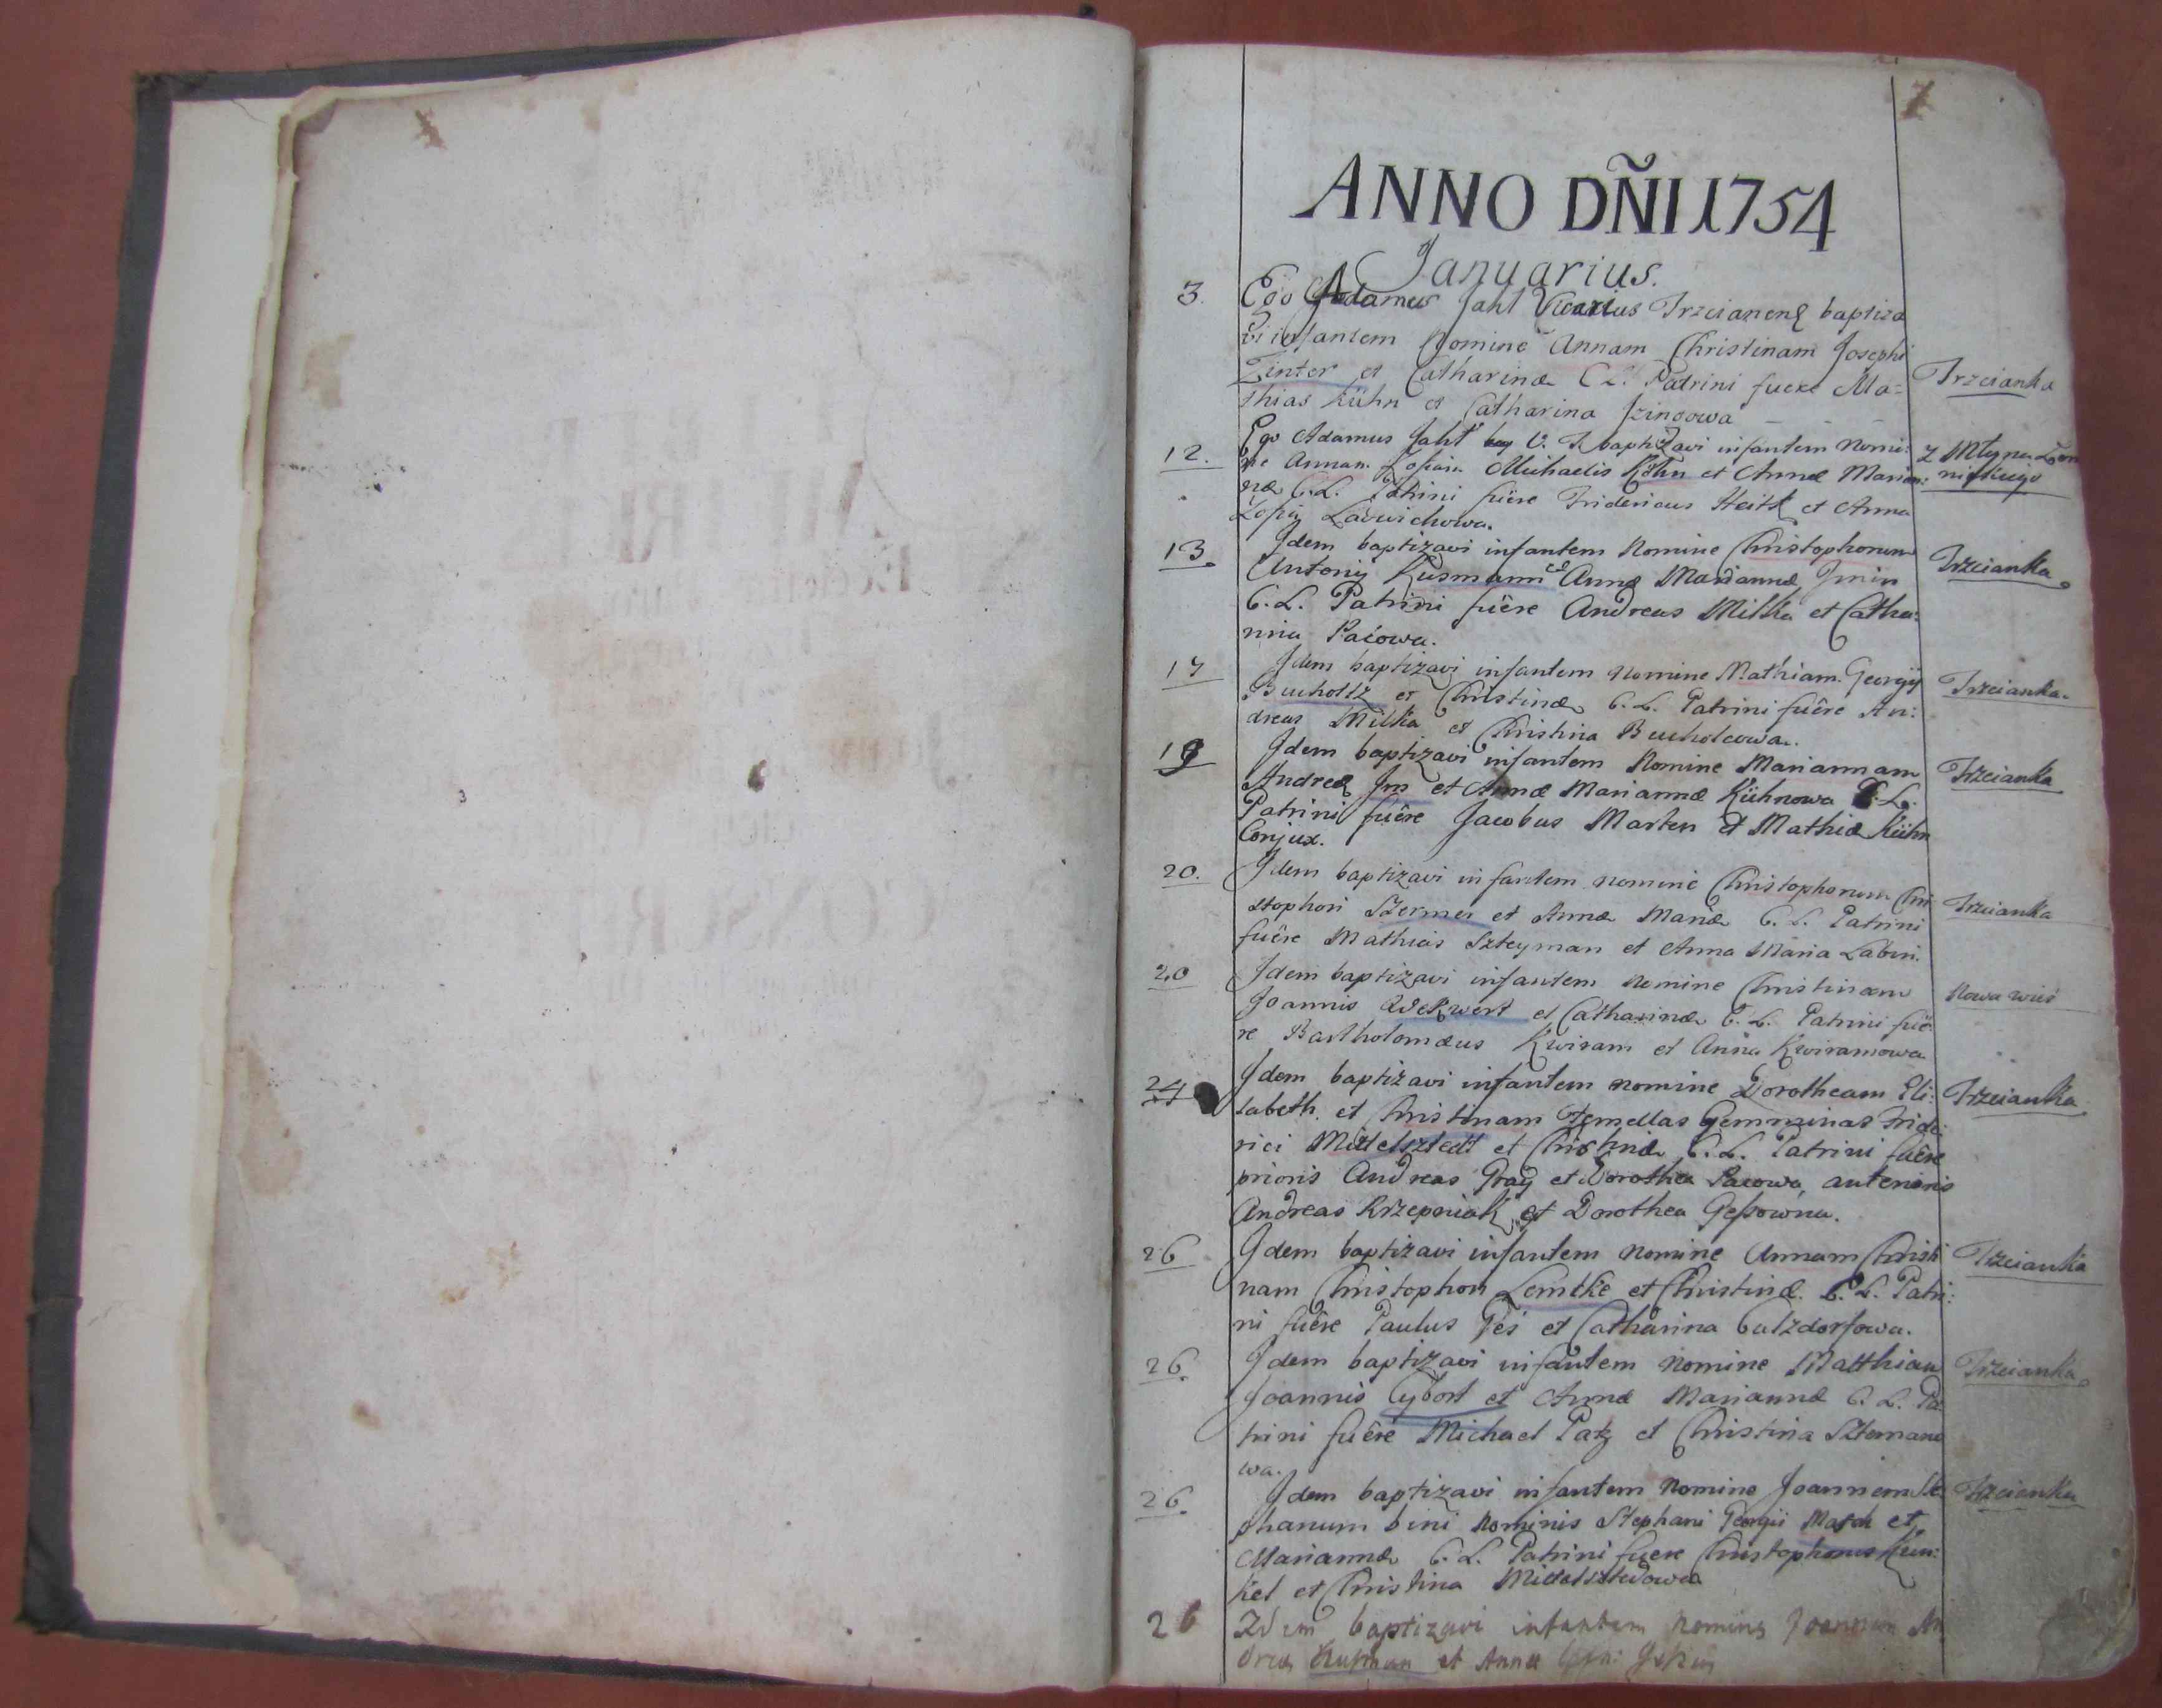 ANNO DÑI 1754
Januarius.
3. Ego Adamus Jaht Vicarius Trzcianens baptiza
vi infantem Nomine Annam Christinam Josephi
Zinter et Catharinæ C.L. Patrini fuere Ma=
thias Kühn et Catharina
Trzcianka
12. Ego Adamus Jaht V. T. baptizavi infantem Nomi:
ne Annam Michaelis Köhn et Annæ Marian:
næ C.L. Patrini fuêre Fridericus et Anna
Z Młyna
13. Idem baptizavi infantem Nomine Christophorum
Antonij Kusmann et Annæ Mariannæ
C.L. Patrini fuêre Andreas Milka et Catha:
rina Pacowa.
Trzcianka
17 Idem baptizavi infantem Nomine Mathiam Georgij
Bucholtz et Christinæ C.L. Patrini fuêre An:
dreas Milka et Christina Bucholcowa.
Trzcianka
19 Idem baptizavi infantem Nomine Mariannam
Andreæ Jm et Annæ Mariannæ Kühnowa C.L.
Patrini fuêre Jacobus Marten et Mathiæ Kühn
Conjux.
Trzcianka
20. Idem baptizavi infantem nomine Christophorum Chri
stophori Szermer et Annæ Mariæ C.L. Patrini
fuêre Mathias Szteyman et Anna Maria
Trzcianka
20 Idem baptizavi infantem Nomine Christinam
Joannis et Catharinæ C.L. Patrini fuê:
re Bartholomæus Kwiram et Anna Kwiramowa
Nowa wieś
24 Idem baptizavi infantem nomine Dorotheam Eli:
sabeth. et Christinam Femellas Geminas Fride
rici Mittelsztedt et Christinæ C.L. Patrini fuêre
prioris Andreas et Dorothea Pacowa, anterioris
Andreas Krzepniak et Dorothea
Trzcianka
26 Idem baptizavi infantem Nomine Annam Christi
nam Christophori Lemtke et Christinæ. C.L. Patri:
ni fuêre Paulus et Catharina
Trzcianka
26. Idem baptizavi infantem Nomine Matthiam
Joannis Cybort et Annæ Mariannæ C.L. Pa
trini fuêre Michael Patz et Christina Sztemano
wa.
Trzcianka
26. Idem baptizavi infantem Nomine Joannem Ste
phanum bini Nominis Stephani Georgii Masch et
Mariannæ C.L. Patrini fuere Christophorus Kun:
kel et Christina Mittelsztedowa
Trzcianka
26 Idem baptizavi infantem nomine Joannem An
dreæ et Annæ